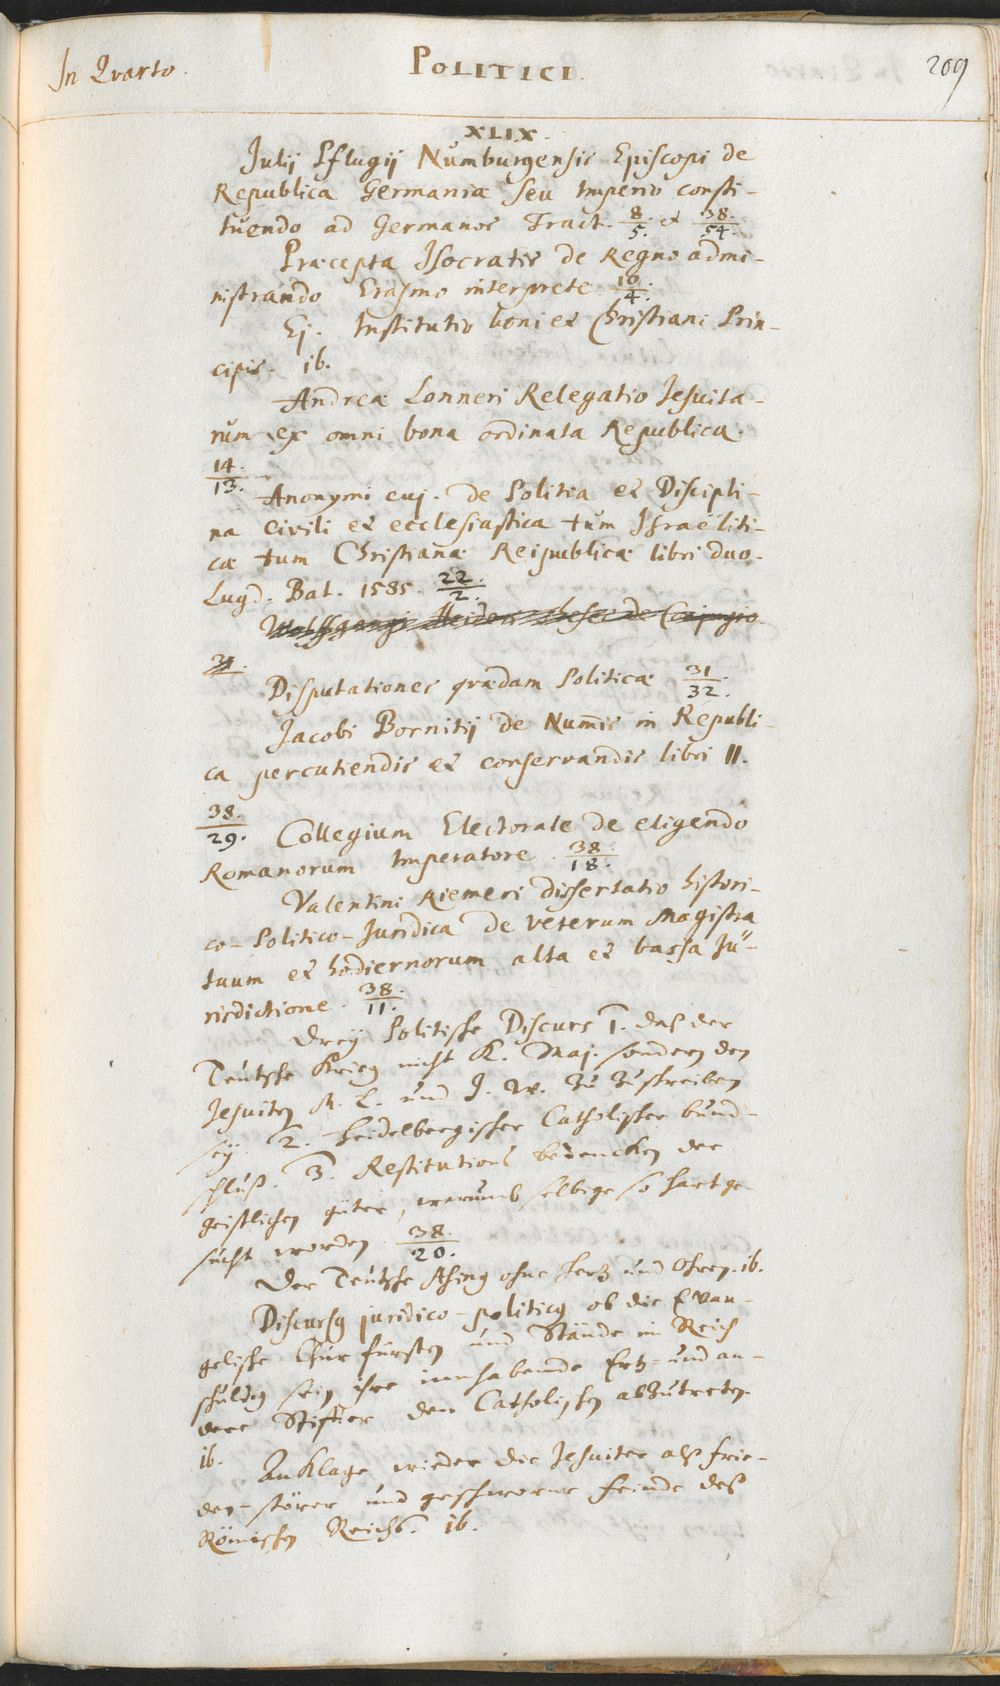 In Qvarto.
POLITICI.
209
XLIX.
Julij Pflugij Numburgensis Episcopi de
Republica Germaniæ seu Imperio consti-
tuendo ad Germanos Tract. 8/5. & 38/54.
Præcepta Isocratis de Regno admi-
nistrando Erasmo interprete 10/4.
Ej. Institutio boni et Christiani Prin-
cipis. ib.
Andreæ Lonneri Relegatio Jesuita-
rum ex omni bona ordinata Republica.
14/13.
Anonymi cuj. de Politia et Discipli-
na civili et ecclesiastica tum Israëliti-
cæ tum Christianæ Reipublicæ libri duo.
Lugd. Bat. 1585. 22/2.
Wolffgangi Heideri theses de Conjugio.
31.
Disputationes quædam Politicæ 31/32.
Jacobi Bornitij de Num̄is in Republi-
ca percutiendis et conservandis libri II.
38/29.
Collegium Electorale de eligendo
Romanorum Imperatore. 38/18.
Valentini Riemeri dissertatio histori-
co-Politico-Juridica de veterum Magistra
tuum et hodiernorum alta et bassa Ju-
risdictione. 38/11.
Drey Politische Discurs 1. daß der
Teutsche Krieg nicht K. Maj. sondern den
Jesuiten M. L. und J. W. zu zuschreiben
sey. 2. Heidelbergischer Catholischer bund-
schluß. 3. Restitutions bedencken der
geistlichen güter, warumb selbige so hart ge-
sucht worden 38/20.
Der Teutsche ohne Hertz und Ohren. ib.
Discursus juridico-politicus ob die Evan-
gelische Churfürsten und Stände im Reich
schuldig sein ihre innhabende Ertz- und an-
dere Stiffter den Catholischen abzutreten.
ib.
Anklage wieder die Jesuiter alß frie-
den-störer und geschworne feinde deß
Römischen Reichs. ib.